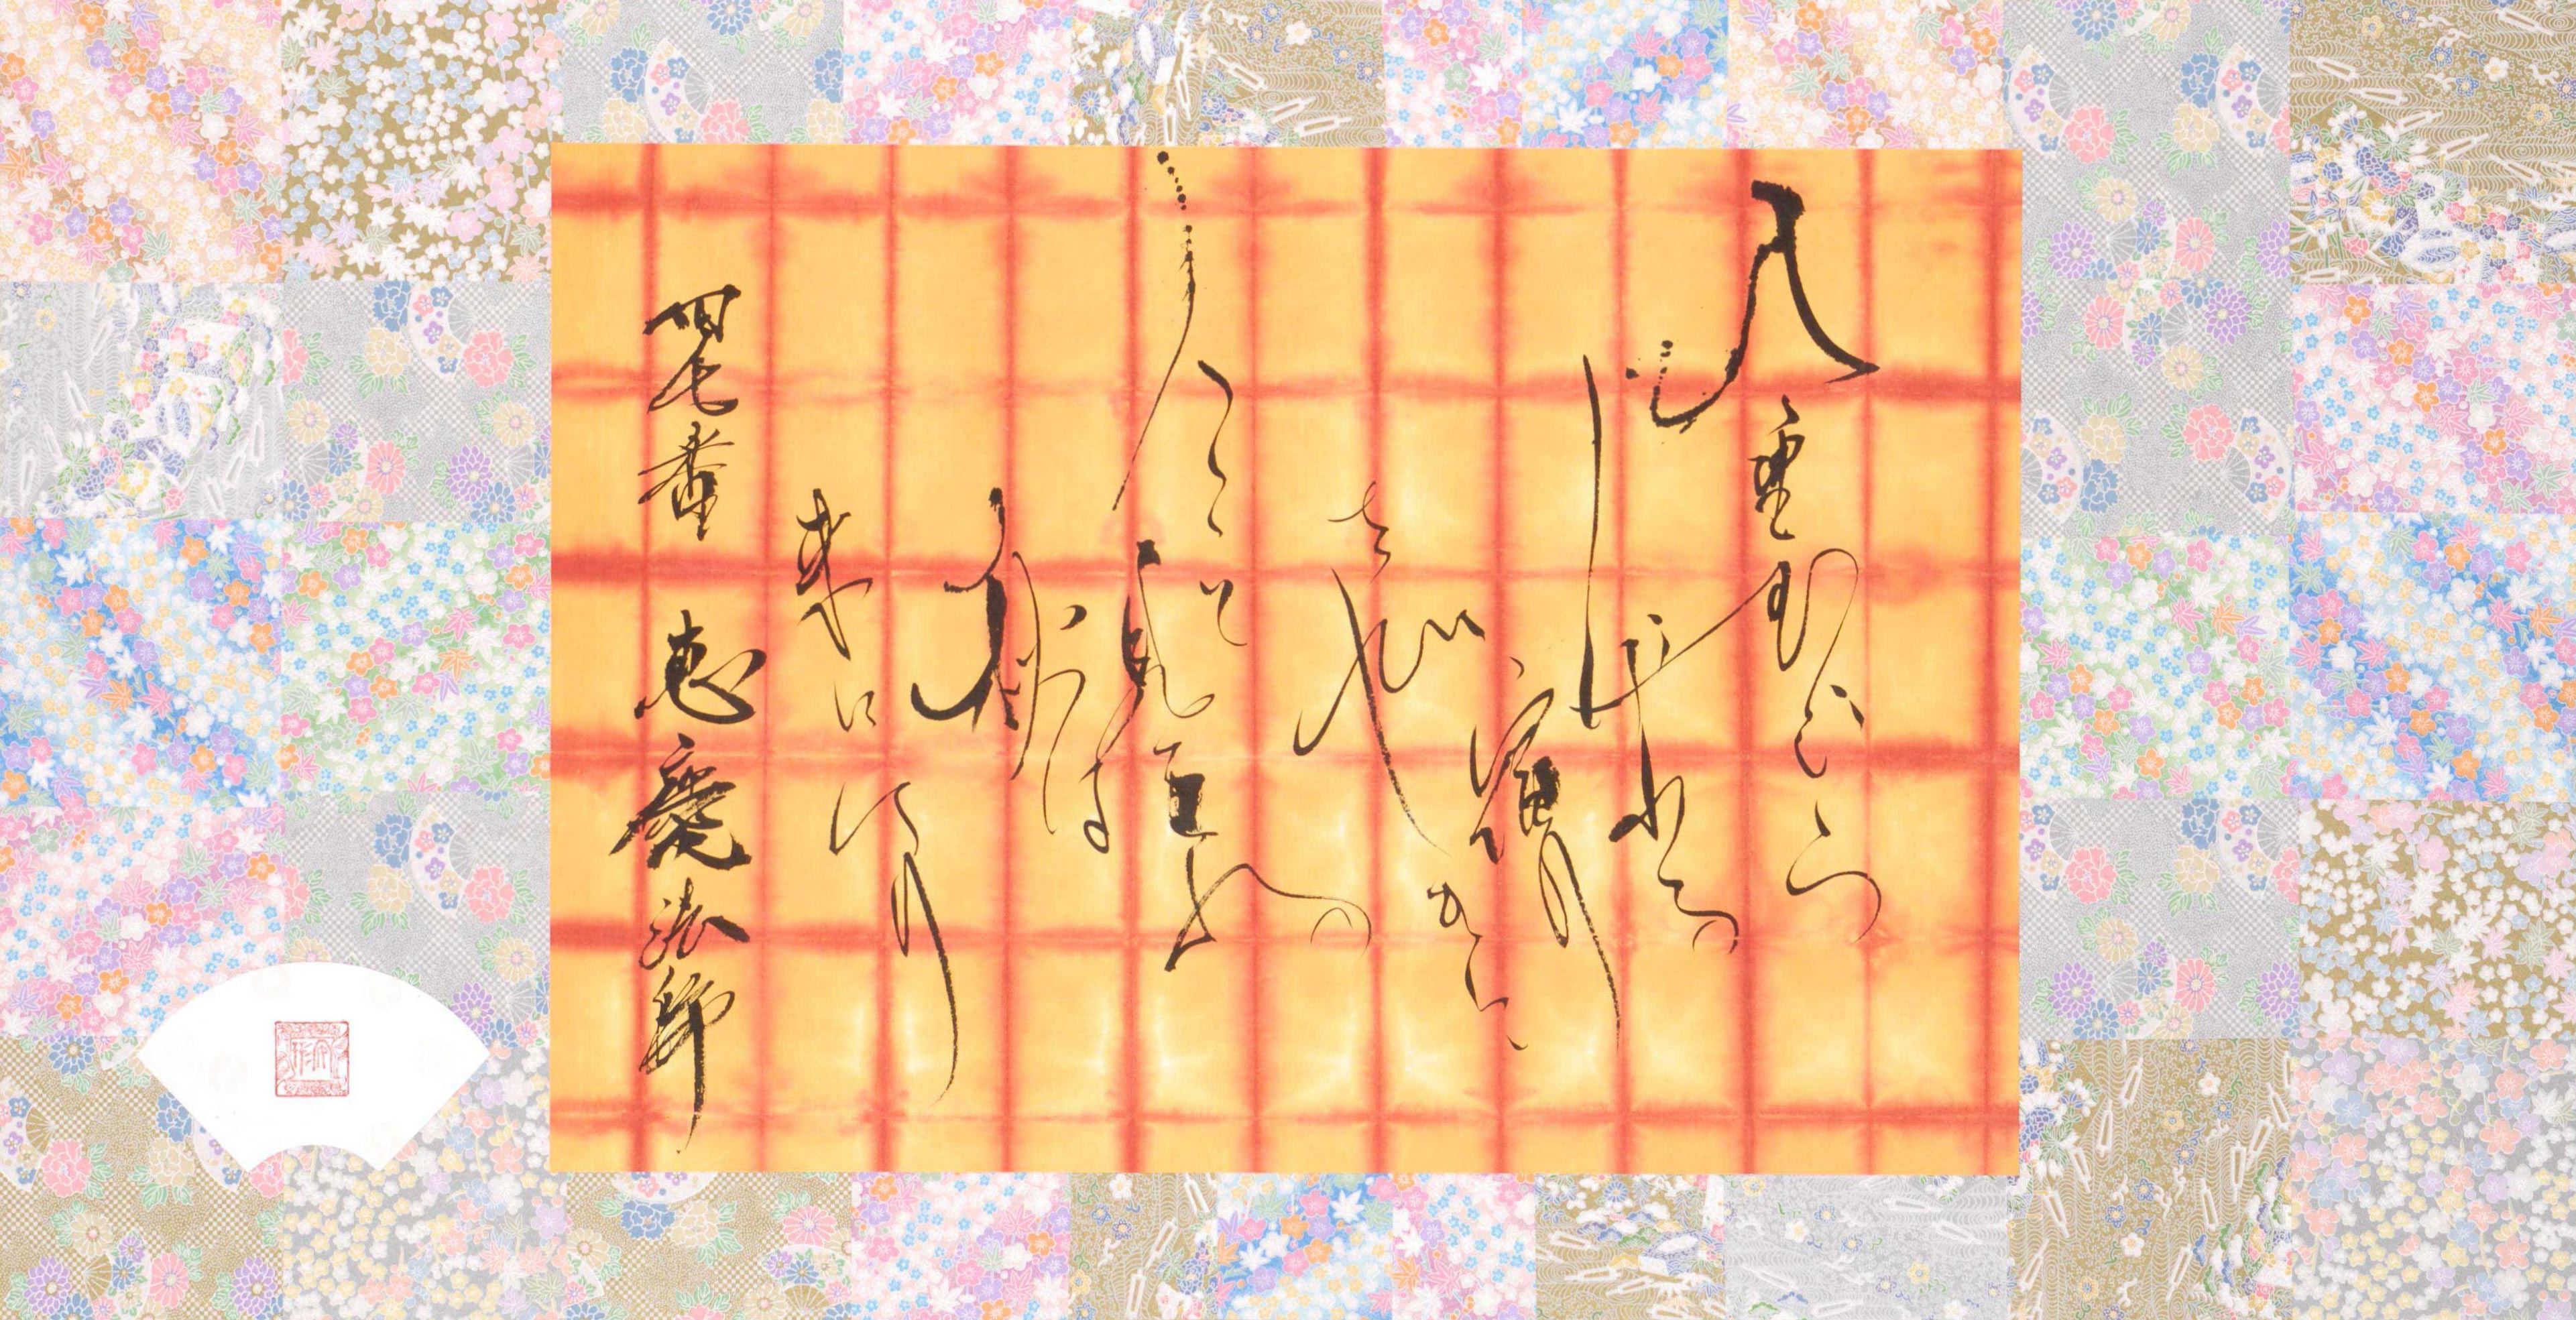 八重むぐら
しげれる
宿の
さびしきに
人こそ
見えね
秋は
来にけり
四七番 恵慶法師